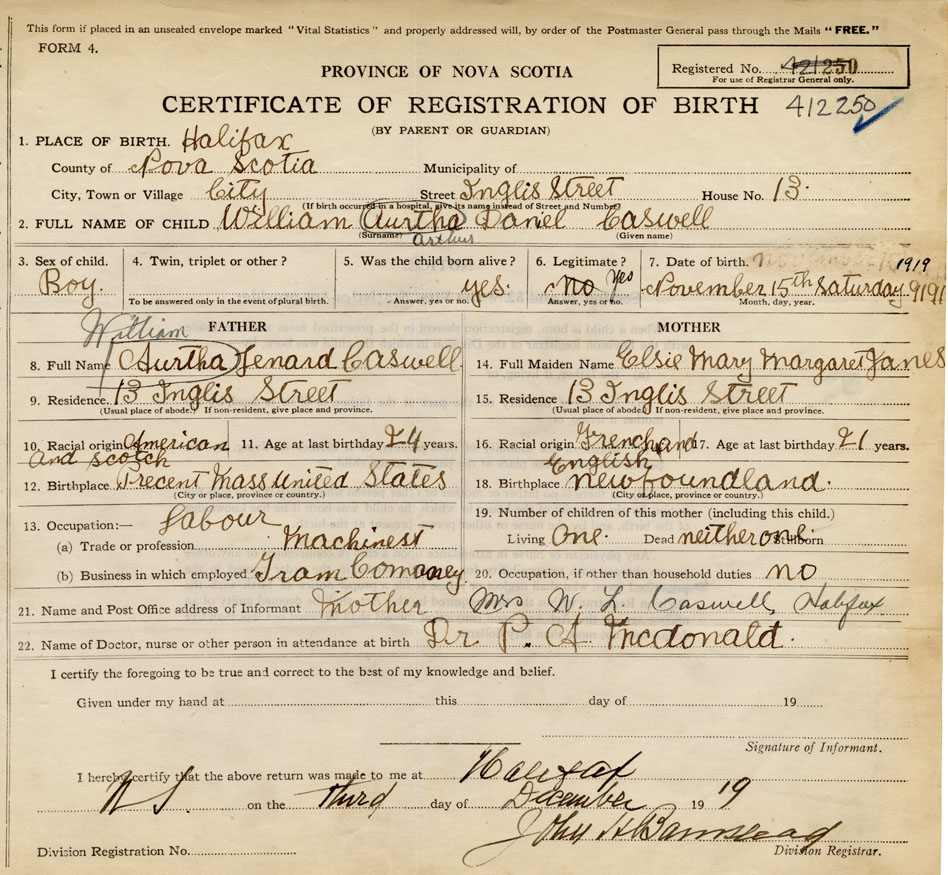 This form if placed in an unsealed envelope marked "Vital Statistics" and properly addressed will, by order of the Postmaster General pass through the Mails "FREE."
FORM 4.
PROVINCE OF NOVA SCOTIA
Registered No. 421250
For use of Registrar General only.
CERTIFICATE OF REGISTRATION OF BIRTH 412250
(BY PARENT OR GUARDIAN)
1. PLACE OF BIRTH. Halifax
County of Nova Scotia Municipality of
City, Town or Village City Street Inglis Street House No. 13
(If birth occurred in a hospital, give its name instead of Street and Number)
2. FULL NAME OF CHILD William Aurtha Daniel Caswell
(Surname) Arthur (Given name)
3. Sex of child. 4. Twin, triplet or other? 5. Was the child born alive? 6. Legitimate? 7. Date of birth. 1919
Boy. yes. no Yes November 15th Saturday 9191
To be answered only in the event of plural birth. Answer, yes or no. Answer, yes or no. Month, day, year.
William
FATHER MOTHER
8. Full Name Aurtha Lenard Caswell 14. Full Maiden Name Elsie Mary Margaret Janes
9. Residence. 13 Inglis Street 15. Residence 13 Inglis Street
(Usual place of abode.) If non-resident, give place and province. (Usual place of abode.) If non-resident, give place and province.
10. Racial origin American 11. Age at last birthday 24 years. 16. Racial origin French and 17. Age at last birthday 21 years.
and scotch English
12. Birthplace Mass united States 18. Birthplace newfoundland.
(City or place, province or country.) (City or place, province or country.)
13. Occupation:— Labour 19. Number of children of this mother (including this child.)
(a) Trade or profession Machinest Living One. Dead neither one. Stillborn
(b) Business in which employed. Tram Comaney 20. Occupation, if other than household duties no
21. Name and Post Office address of Informant Mother Mrs W. L. Caswell, Halifax
22. Name of Doctor, nurse or other person in attendance at birth Dr P. A. Mcdonald.
I certify the foregoing to be true and correct to the best of my knowledge and belief.
Given under my hand at this day of 19
Signature of Informant.
I hereby certify that the above return was made to me at Halifax
N S. on the third day of December 19 19
John H Barnstead
Division Registration No. Division Registrar.